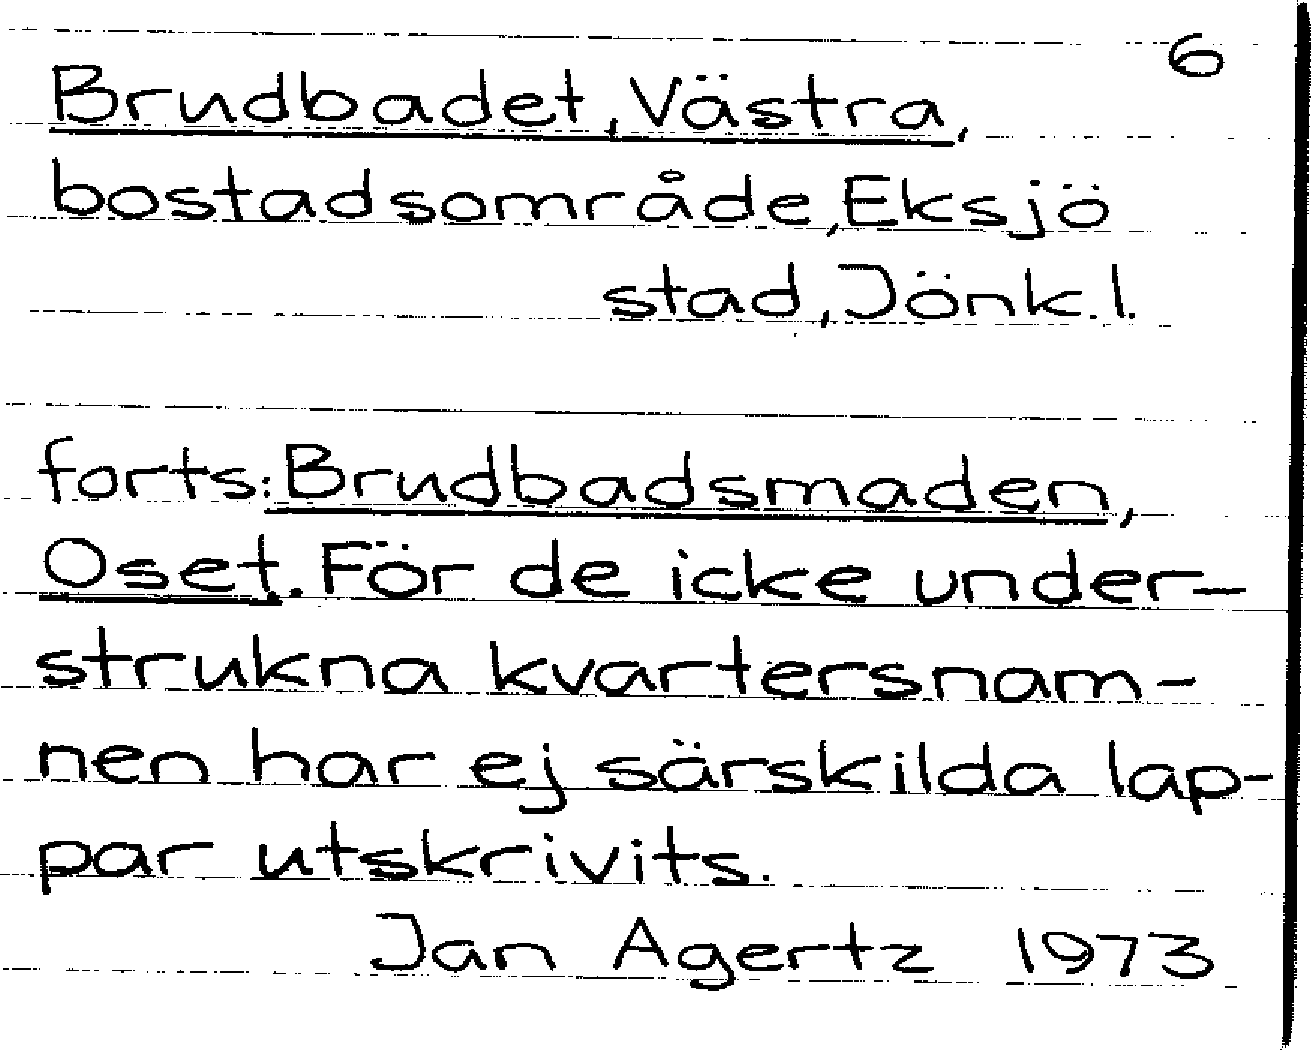 6
Brudbadet, Västra,
bostadsområde, Eksjö
stad, Jönk. l.
forts: Brudbadsmaden,
Oset. För de icke under-
strukna kvartersnam-
nen har ej särskilda lap-
par utskrivits.
Jan Agertz 1973